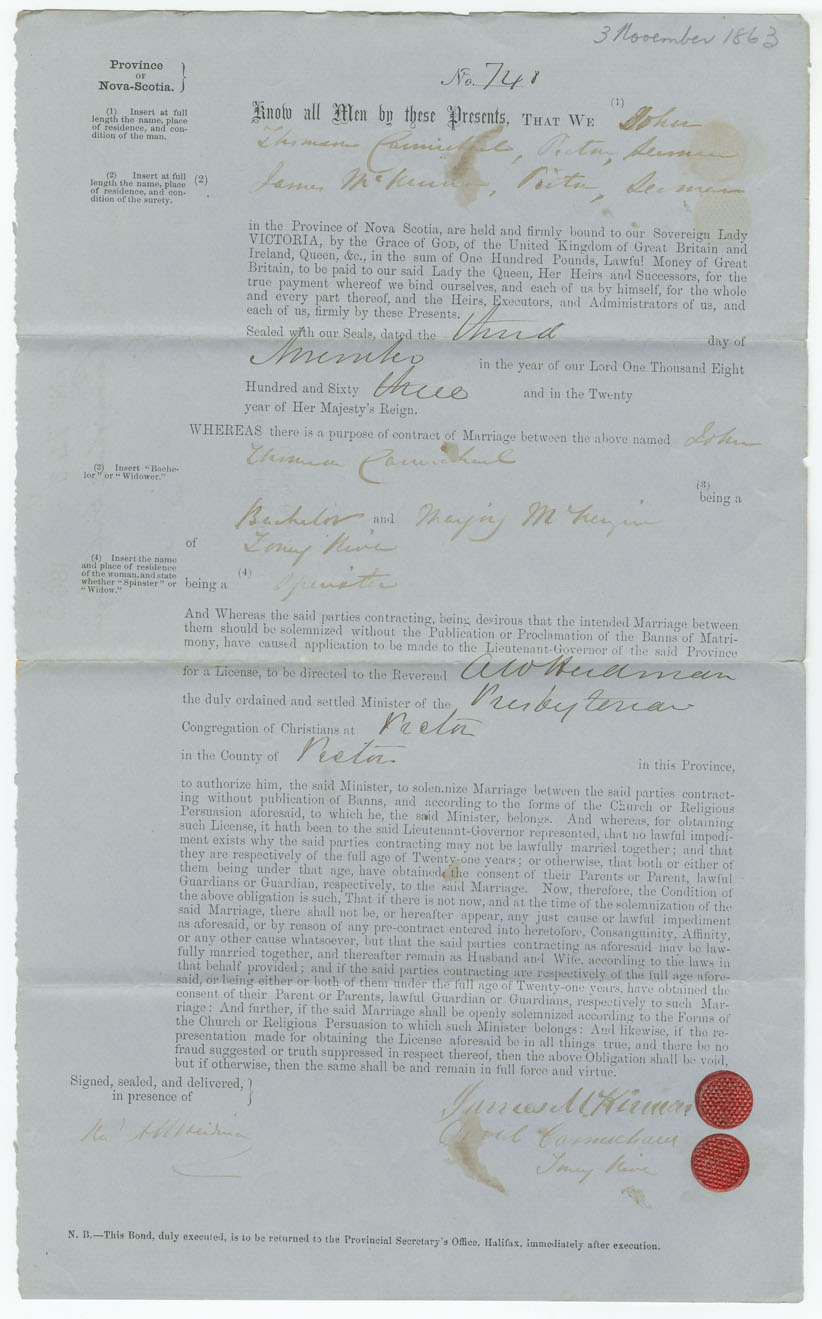 3 November 1863
Province
OF
Nova-Scotia.
No. 748
(1) Insert at full
length the name, place
of residence, and con-
dition of the man.
Know all Men by these Presents, THAT WE (1) John
Thomson Carmichael, Pictou, Seaman
(2) Insert at full
length the name, place
of residence, and con-
dition of the surety.
(2) James McKinnon, Pictou, Seaman
in the Province of Nova Scotia, are held and firmly bound to our Sovereign Lady
VICTORIA, by the Grace of GOD, of the United Kingdom of Great Britain and
Ireland, Queen, &c., in the sum of One Hundred Pounds, Lawful Money of Great
Britain, to be paid to our said Lady the Queen, Her Heirs and Successors, for the
true payment whereof we bind ourselves, and each of us by himself, for the whole
and every part thereof, and the Heirs, Executors, and Administrators of us, and
each of us, firmly by these Presents.
Sealed with our Seals, dated the third day of
November in the year of our Lord One Thousand Eight
Hundred and Sixty three and in the Twenty
year of Her Majesty's Reign.
WHEREAS there is a purpose of contract of Marriage between the above named John
Thomson Carmichael
(3) Insert "Bache-
lor" or "Widower."
(3)
being a
Bachelor and Marjory McKenzie
of Toney River
(4) Insert the name
and place of residence
of the woman, and state
whether "Spinster" or
"Widow."
being a (4) Spinster
And Whereas the said parties contracting, being desirous that the intended Marriage between
them should be solemnized without the Publication or Proclamation of the Banns of Matri-
mony, have caused application to be made to the Lieutenant-Governor of the said Province
for a License, to be directed to the Reverend A W Herdman
the duly ordained and settled Minister of the Presbyterian
Congregation of Christians at Pictou
in the County of Pictou in this Province,
to authorize him, the said Minister, to solemnize Marriage between the said parties contract-
ing without publication of Banns, and according to the forms of the Church or Religious
Persuasion aforesaid, to which he, the said Minister, belongs. And whereas, for obtaining
such License, it hath been to the said Lieutenant-Governor represented, that no lawful impedi-
ment exists why the said parties contracting may not be lawfully married together; and that
they are respectively of the full age of Twenty-one years; or otherwise, that both or either of
them being under that age, have obtained the consent of their Parents or Parent, lawful
Guardians or Guardian, respectively, to the said Marriage. Now, therefore, the Condition of
the above obligation is such, That if there is not now, and at the time of the solemnization of the
said Marriage, there shall not be, or hereafter appear, any just cause or lawful impediment
as aforesaid, or by reason of any pre-contract entered into heretofore, Consanguinity, Affinity,
or any other cause whatsoever, but that the said parties contracting as aforesaid may be law-
fully married together, and thereafter remain as Husband and Wife, according to the laws in
that behalf provided; and if the said parties contracting are respectively of the full age afore-
said, or being either or both of them under the full age of Twenty-one years, have obtained the
consent of their Parent or Parents, lawful Guardian or Guardians, respectively to such Mar-
riage: And further, if the said Marriage shall be openly solemnized according to the Forms of
the Church or Religious Persuasion to which such Minister belongs: And likewise, if the re-
presentation made for obtaining the License aforesaid be in all things true, and there be no
fraud suggested or truth suppressed in respect thereof, then the above Obligation shall be void,
but if otherwise, then the same shall be and remain in full force and virtue.
Signed, sealed, and delivered,
in presence of
James McKinnon
Carmichael
Toney River
Rev. A W Herdman
N. B.—This Bond, duly executed, is to be returned to the Provincial Secretary's Office, Halifax, immediately after execution.